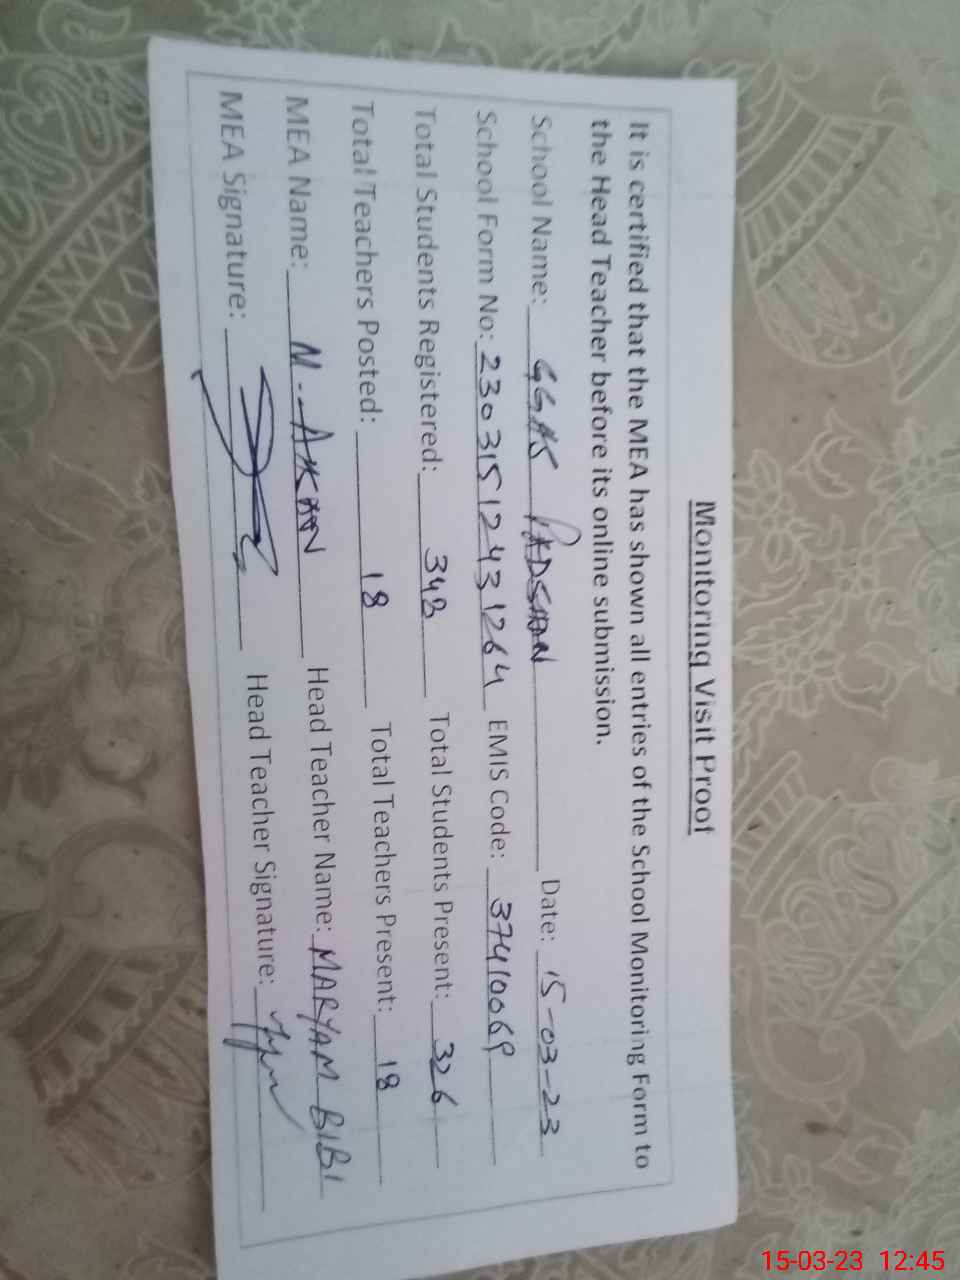 Monitoring Visit Proof
It is certified that the MEA has shown all entries of the School Monitoring Form to
the Head Teacher before its online submission.
School Name: GGHS PADSHAN Date: 15-03-23
School Form No: 230315124312 64 EMIS Code: 37410069
Total Students Registered: 348 Total Students Present: 326
Total Teachers Posted: 18 Total Teachers Present: 18
MEA Name: M. Head Teacher Name: MARYAM BIBI
MEA Signature: Head Teacher Signature:
15-03-23 12:45